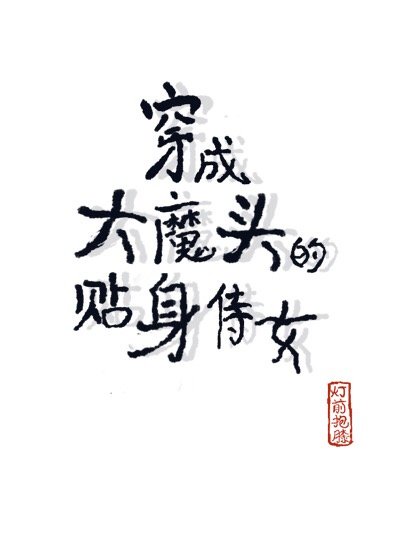 穿成
大魔头的
贴身侍女
灯前抱膝